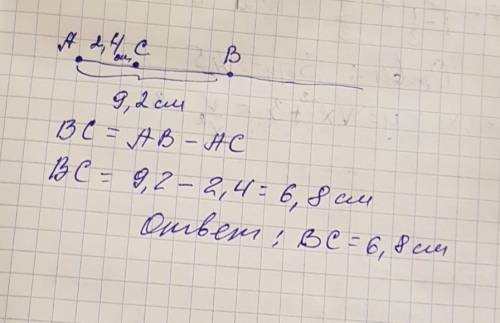 A 2,4 см C B
9,2 см
BC = AB − AC
BC = 9,2 − 2,4 = 6,8 см
Ответ: BC = 6,8 см